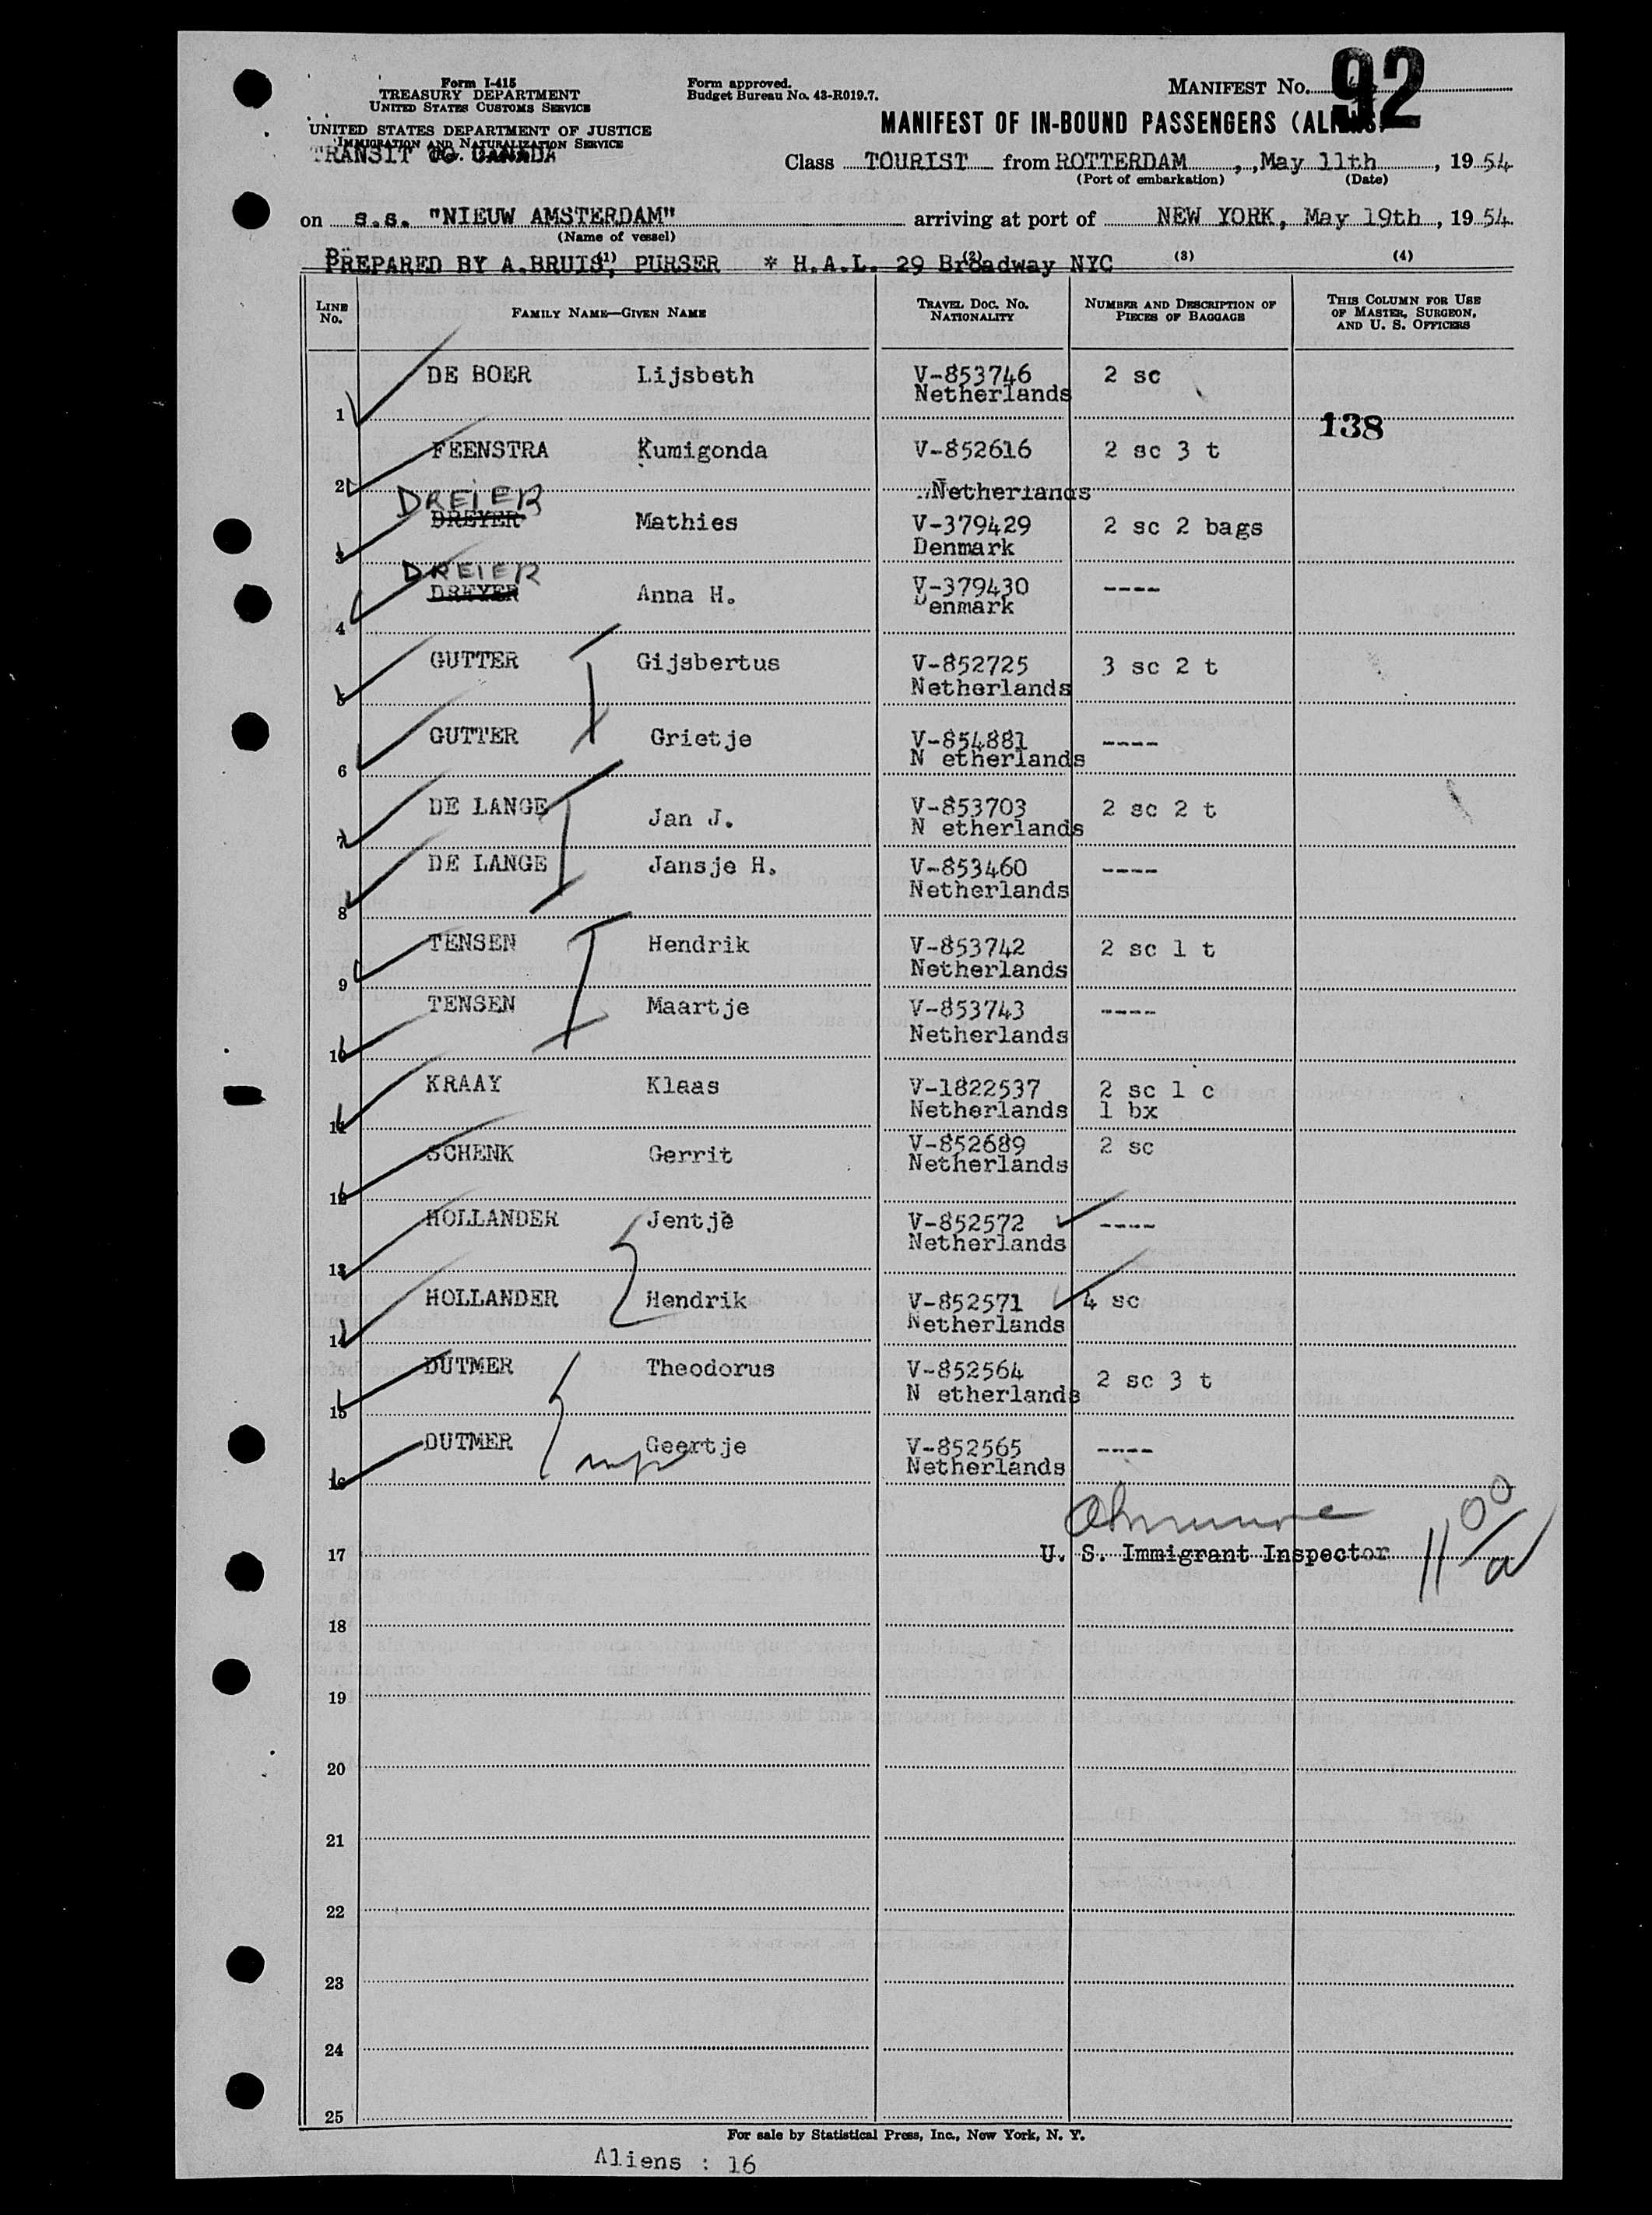 Form I-415
TREASURY DEPARTMENT
UNITED STATES CUSTOMS SERVICE
UNITED STATES DEPARTMENT OF JUSTICE
IMMIGRATION AND NATURALIZATION SERVICE
TRANSIT TO CANADA
Form approved.
Budget Bureau No. 43-R019.7.
MANIFEST No. 92
MANIFEST OF IN-BOUND PASSENGERS (ALIENS)
Class TOURIST from ROTTERDAM, May 11th, 1954
(Port of embarkation) (Date)
on s.s. "NIEUW AMSTERDAM" arriving at port of NEW YORK, May 19th, 1954
(Name of vessel)
PREPARED BY A.BRUIS, PURSER * H.A.L. 29 Broadway NYC
(1) (2) (3) (4)
LINE No. FAMILY NAME—GIVEN NAME TRAVEL DOC. NO. NATIONALITY NUMBER AND DESCRIPTION OF PIECES OF BAGGAGE THIS COLUMN FOR USE OF MASTER, SURGEON, AND U. S. OFFICERS
1 DE BOER Lijsbeth V-853746 Netherlands 2 sc
138
2 FEENSTRA Kumigonda V-852616 Netherlands 2 sc 3 t
DREIER
3 DREYER Mathies V-379429 Denmark 2 sc 2 bags
DREIER
4 DREYER Anna H. V-379430 Denmark ----
5 GUTTER Gijsbertus V-852725 Netherlands 3 sc 2 t
6 GUTTER Grietje V-854881 N etherlands ----
7 DE LANGE Jan J. V-853703 N etherlands 2 sc 2 t
8 DE LANGE Jansje H. V-853460 Netherlands ----
9 TENSEN Hendrik V-853742 Netherlands 2 sc 1 t
10 TENSEN Maartje V-853743 Netherlands ----
11 KRAAY Klaas V-1822537 Netherlands 2 sc 1 c 1 bx
12 SCHENK Gerrit V-852689 Netherlands 2 sc
13 HOLLANDER Jentje V-852572 Netherlands ----
14 HOLLANDER Hendrik V-852571 Netherlands 4 sc
15 DUTMER Theodorus V-852564 N etherlands 2 sc 3 t
16 DUTMER Geertje V-852565 Netherlands ----
17 U. S. Immigrant Inspector 11 00/a
18
19
20
21
22
23
24
25
For sale by Statistical Press, Inc., New York, N. Y.
Aliens : 16